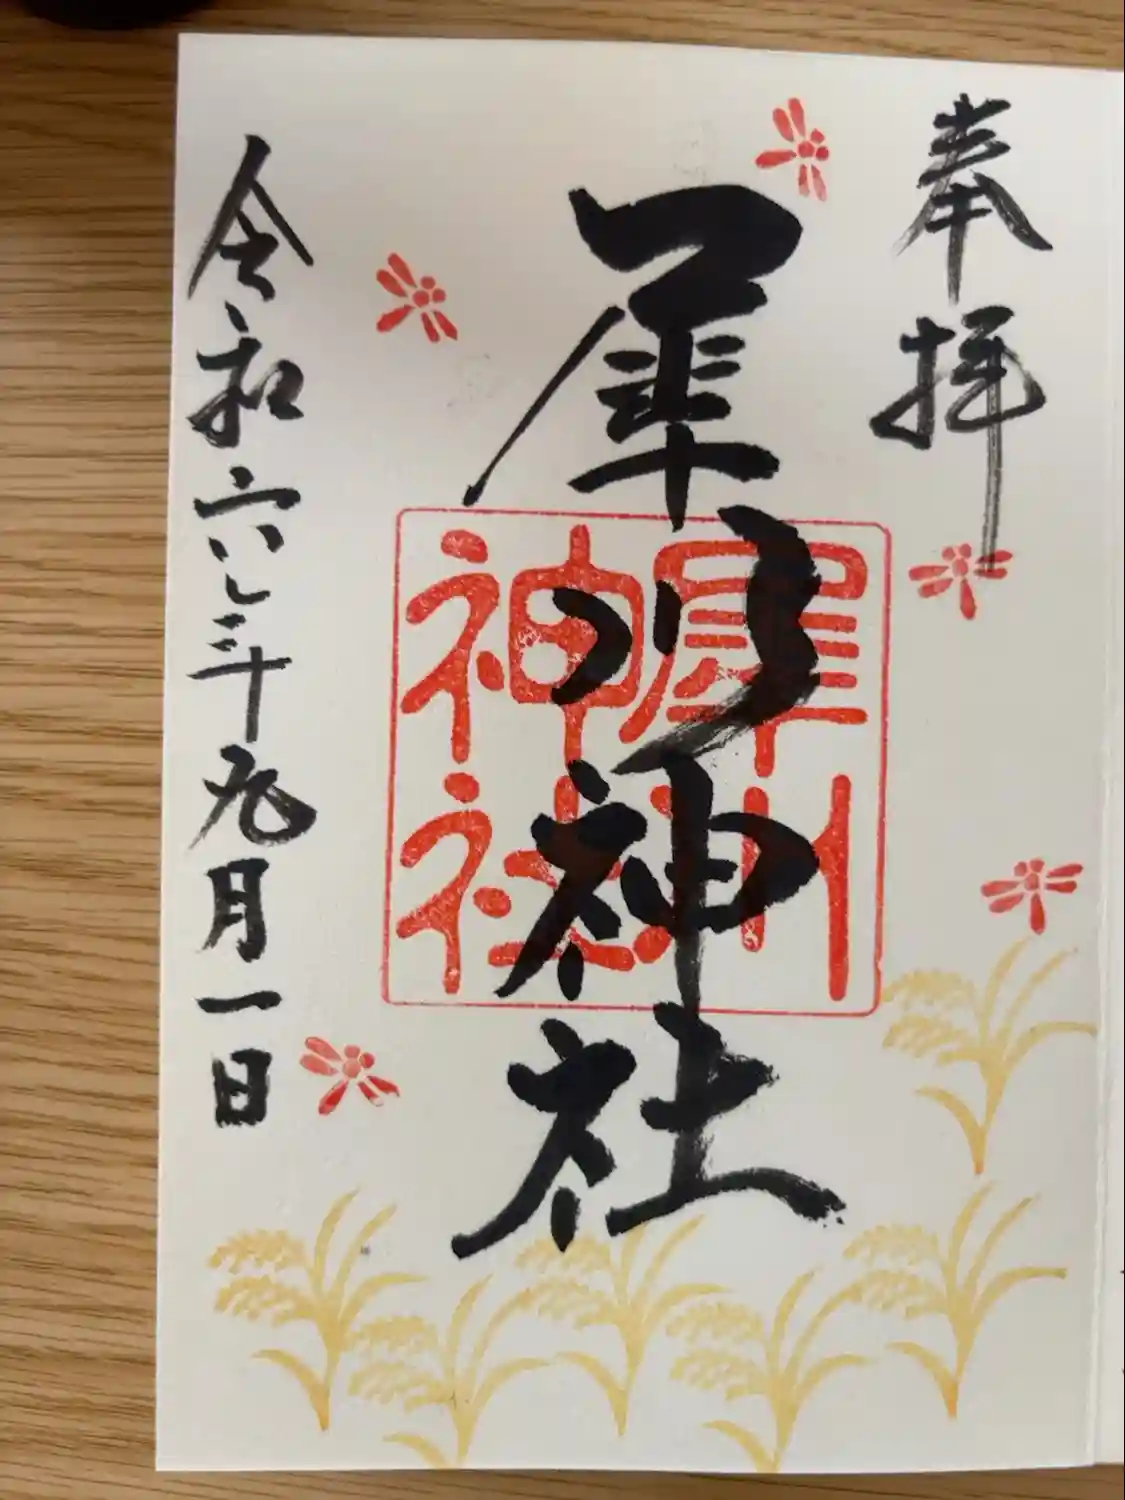 奉拝
犀川神社
犀川神社
令和六年九月一日